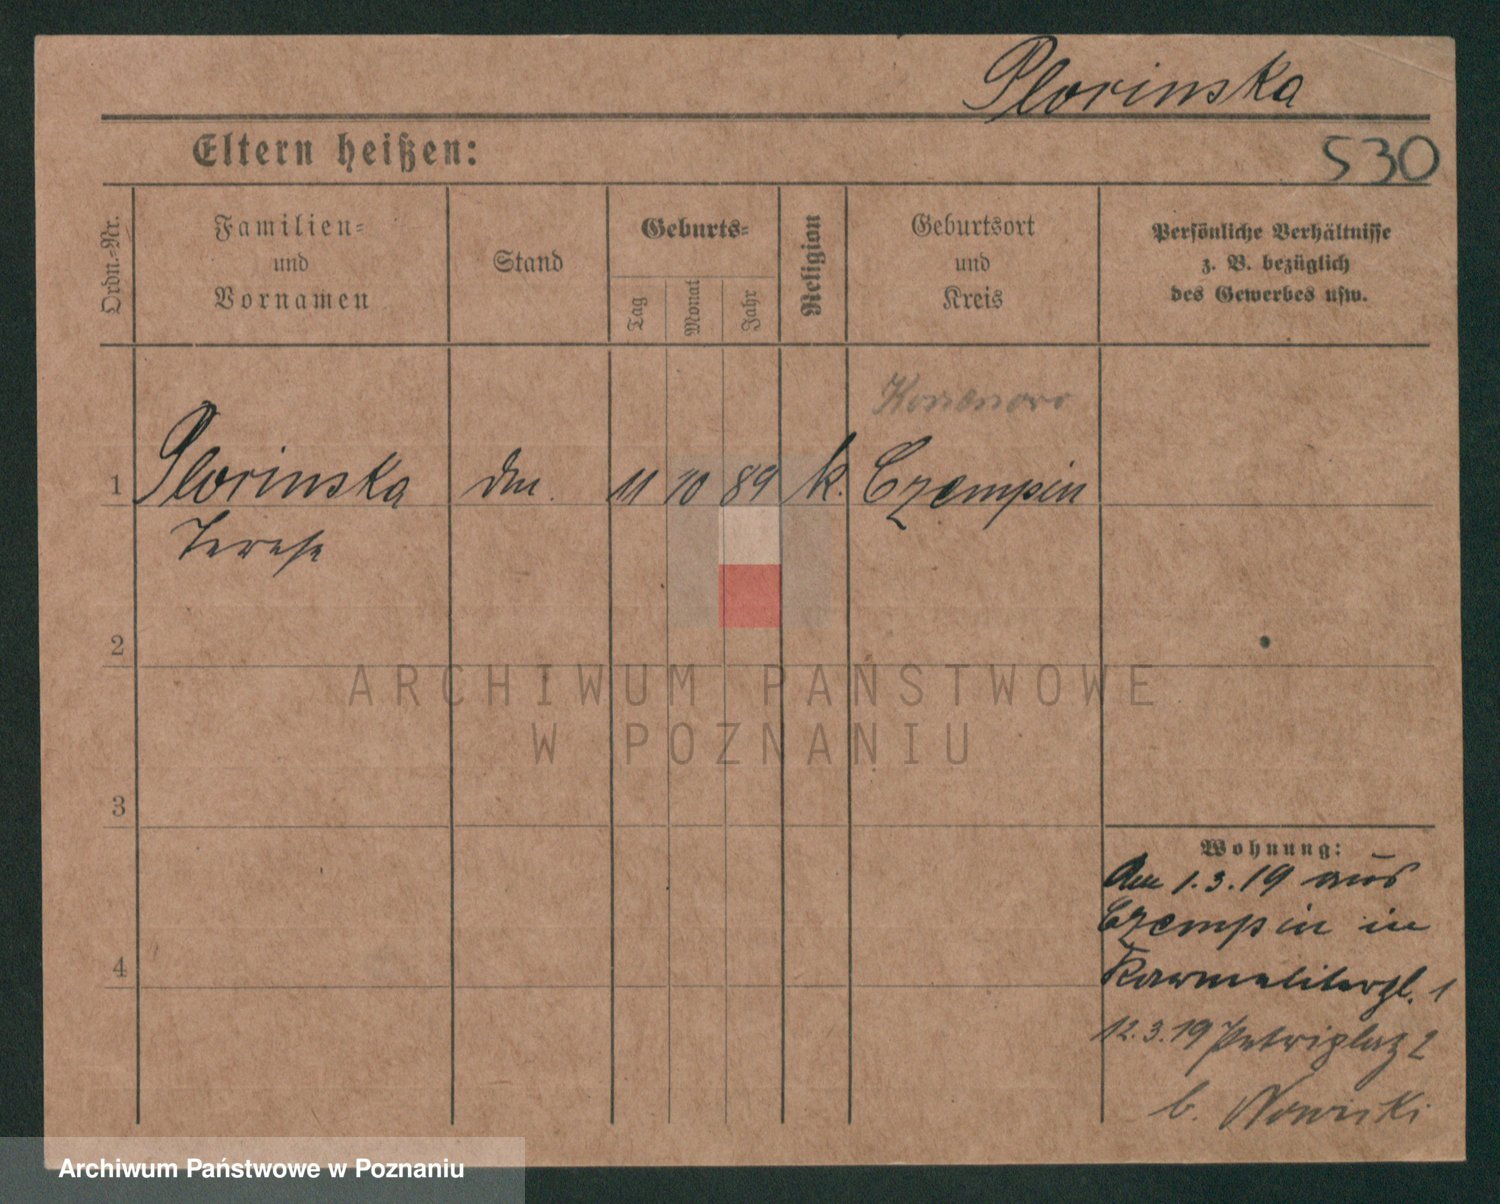 Plorinska
Eltern heißen:
530
Ordn.-Nr.
Familien-
und
Vornamen
Stand
Geburts-
Tag
Monat
Jahr
Religion
Geburtsort
und
Kreis
Persönliche Verhältnisse
z. B. bezüglich
des Gewerbes usw.
1
Plorinska
11
10
89
k.
Czempin
Terese
2
ARCHIWUM PAŃSTWOWE
W POZNANIU
3
4
Wohnung:
Am 1.3.19 aus
Czempin in
Karmeliterpl. 1
12.3.19 Petriplatz 2
b. Nowicki
Archiwum Państwowe w Poznaniu